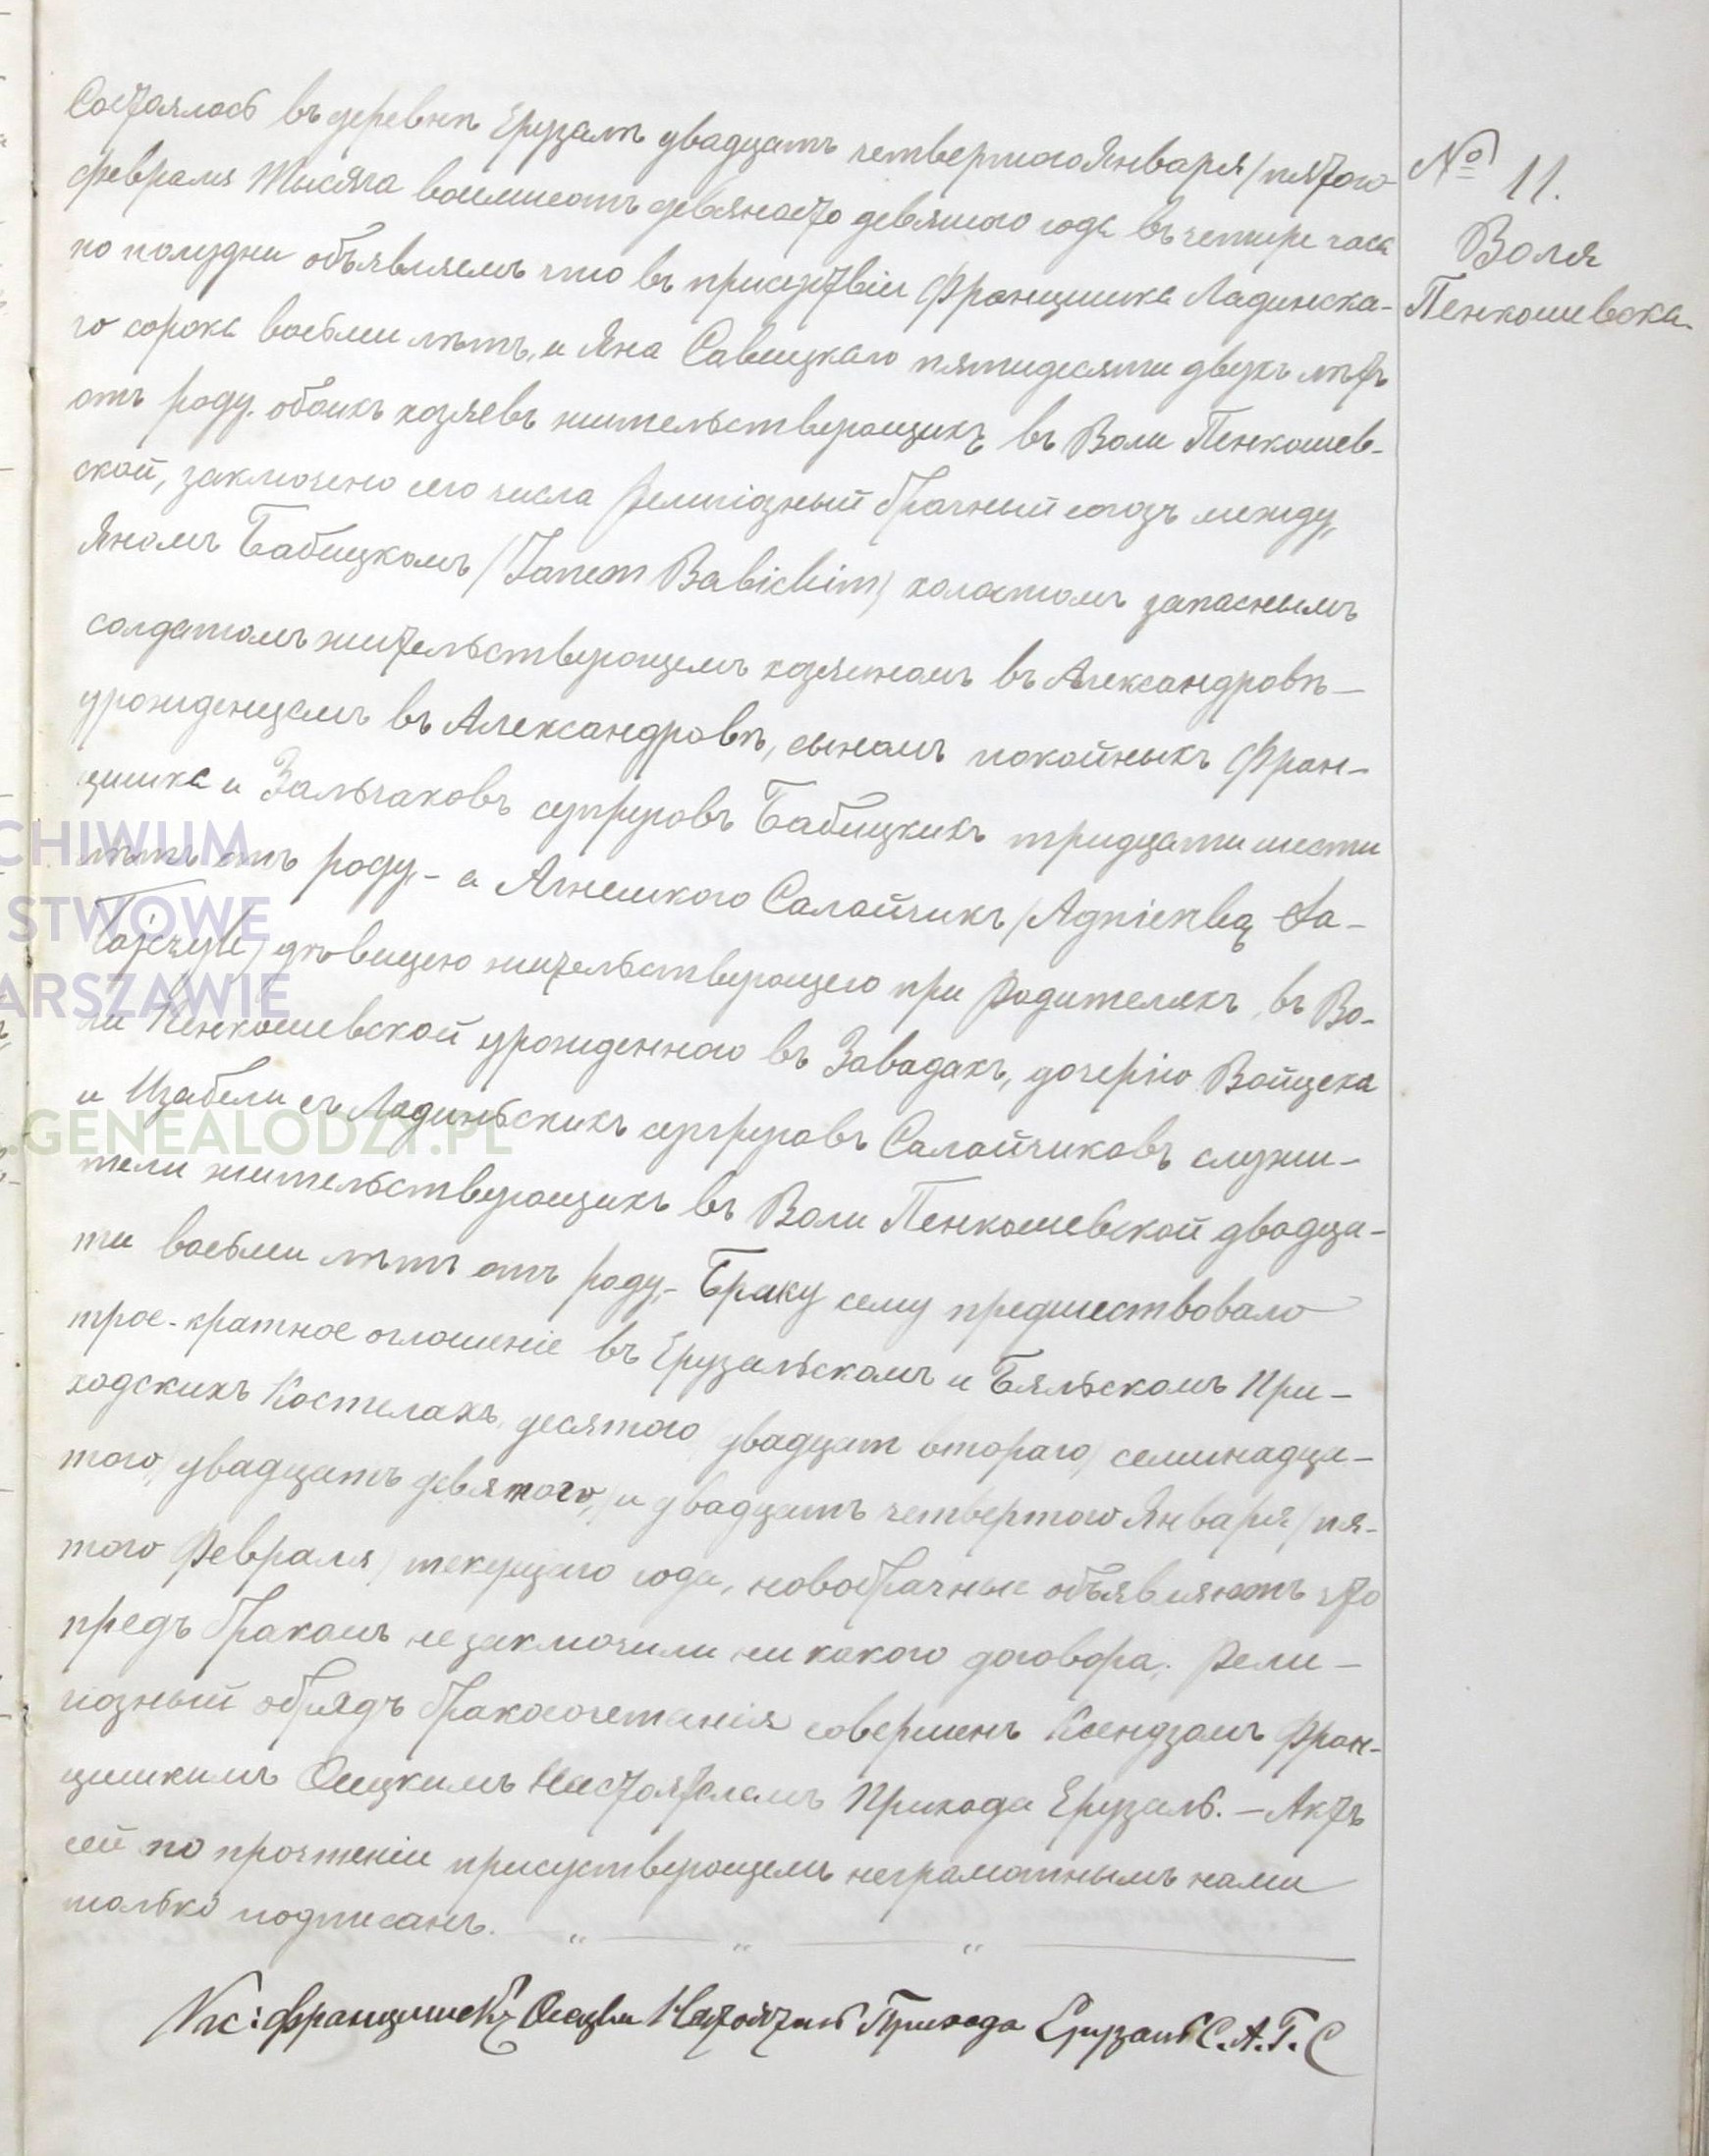 № 11.
Воля
Пенкошевска.
Состоялось въ деревнѣ Ерузалѣ двадцать четвертого Января /пятого
Февраля Тысяча восемьсотъ девяносто девятого года въ четыре часа
по полудни объявляемъ что въ присутствіи Францишка Ладинска-
го сорока восьми лѣтъ, и Яна Савицкаго пятидесяти двухъ лѣтъ
отъ роду. обоихъ хозяевъ жительствующихъ въ Воли Пенкошев-
ской, заключено сего числа религіозный брачный союзъ между,
Яномъ Бабицкомъ /Janem Babickim/ холостомъ запаснымъ
солдатомъ жительствующемъ хозяиномъ въ Александровѣ—
урожденцемъ въ Александровѣ, сыномъ покойныхъ Фран-
цишка и супруговъ Бабицкихъ тридцати шести
лѣтъ отъ роду,- а Агнешкого Салайчикъ /Agnieszką Sa-
łajczyk/ дѣвицею жительствующего при Родителяхъ, въ Во-
ли Пенкошевской урожденного въ Завадахъ, дочерію Войцеха
и Изабели съ Ладиньскихъ супруговъ Салайчиковъ служи-
тели жительствующихъ въ Воли Пенкошевской двадца-
ти восьми лѣтъ отъ роду,- Браку сему предшествовало
трое-кратное оглошеніе въ Ерузальскомъ и Бяльскомъ При-
ходскихъ Костелахъ, десятого /двадцат второго/ семнадца-
того, /двадцать девятого,/ и двадцать четвертого Января /пя-
того Февраля/ текущаго года, новобрачные объявляютъ что
предъ бракомъ незаключили ни какого договора. Рели-
гіозный обрядъ бракосочетанія совершенъ Ксендзомъ Фран-
цишкимъ Осицкимъ Настоятелемъ Прихода Ерузаль. — Актъ
сей по прочтеніи присуствующемъ неграмотнымъ нами
только подписанъ. — " — " — " —
Кс: Францишекъ Настоятель Прихода Ерузаль С.А.Г.С